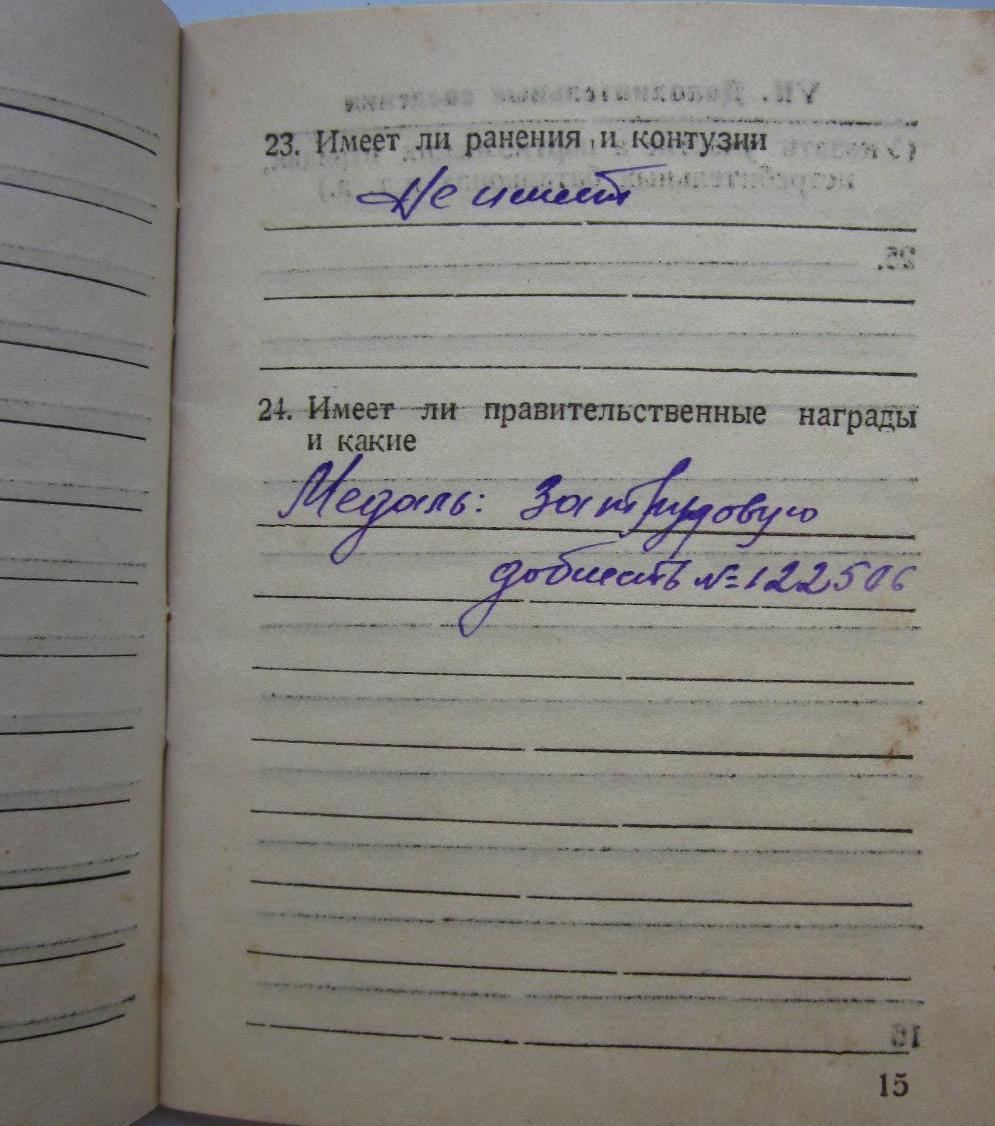 23. Имеет ли ранения и контузии
Не имеет
24. Имеет ли правительственные награды
и какие
Медаль: За трудовую
доблесть № 122506
15